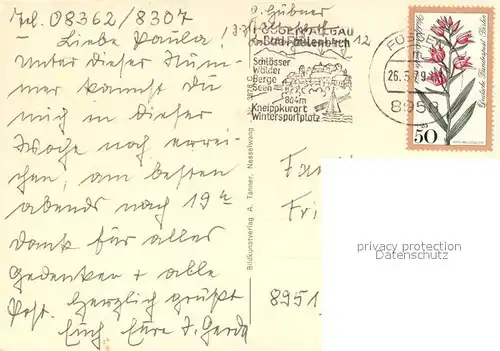 Tel. 08362/8307
Liebe Paula!
Unter dieser Num-
mer kannst du
mich in dieser
Woche noch errei-
chen, am besten
abends nach 19
Dank für alles
Gedenken + alle
Post. Herzlich grüßt
Euch Eure T. Gerda
G. Hübner
Bad Faulenbach
12
Schlösser
Wälder
Berge
Seen
804m
Kneippkurort
Wintersportplatz
FÜSSEN
26.3.79
8958
Deutsche Bundespost Berlin
50
Bildkunstverlag A. Tanner, Nesselwang
Fa
Fri
8951
privacy protection
watermark